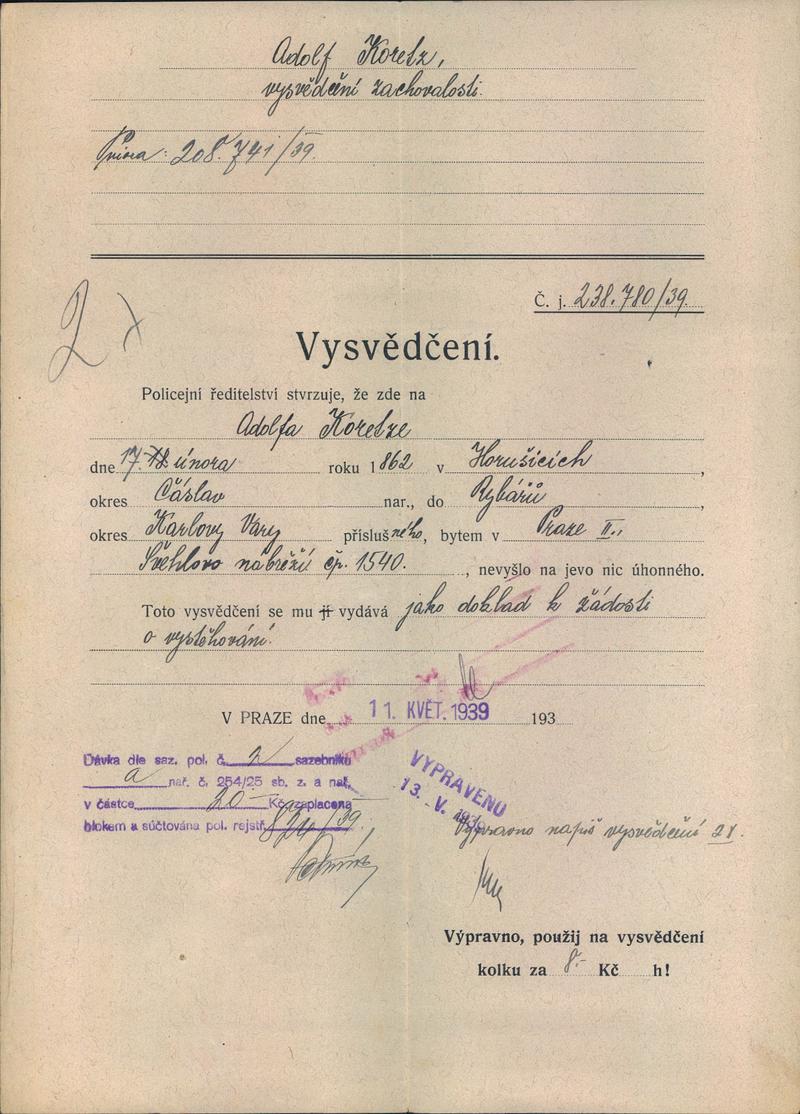 Adolf Koretz,
vysvědčení zachovalosti.
Priora: 208.741/39.
2 x
Č. j. 238.780/39.
Vysvědčení.
Policejní ředitelství stvrzuje, že zde na
Adolfa Koretze
dne 17. února roku 1862 v Horušicích,
okres Čáslav nar., do Rybářů,
okres Karlovy Vary příslušného, bytem v Praze II.,
Švehlovo nábřeží čp. 1540., nevyšlo na jevo nic úhonného.
Toto vysvědčení se mu vydává jako doklad k žádosti
o vystěhování.
V PRAZE dne 11. KVĚT. 1939 193
Dávka dle saz. pol. č. 2 sazebníku
a nař. č. 254/25 sb. z. a nař.
v částce 20- Kč zaplacena
blokem a súčtována pol. rejstř. 824/39.
VYPRAVENO
13. V. 1939
Výpravno napiš vysvědčení 2x.
Výpravno, použij na vysvědčení
kolku za 8.- Kč h!